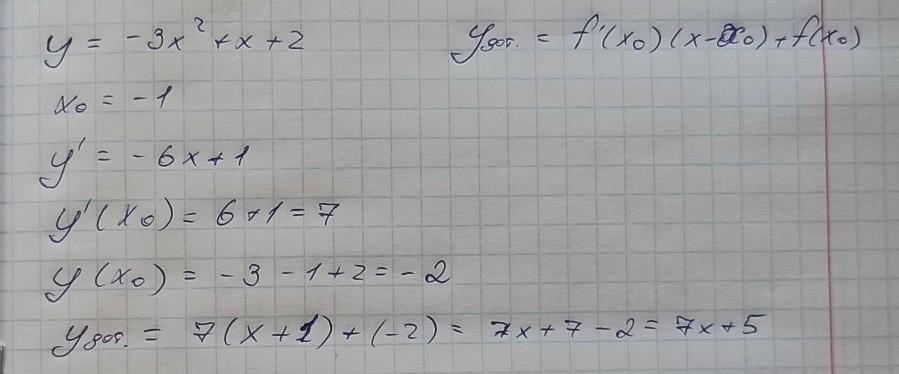 y = -3x² + x + 2
yдот. = f'(x₀)(x-x₀)+f(x₀)
x₀ = -1
y' = -6x+1
y'(x₀) = 6+1=7
y(x₀) = -3-1+2=-2
yдот. = 7(x+1)+(-2) = 7x+7-2=7x+5